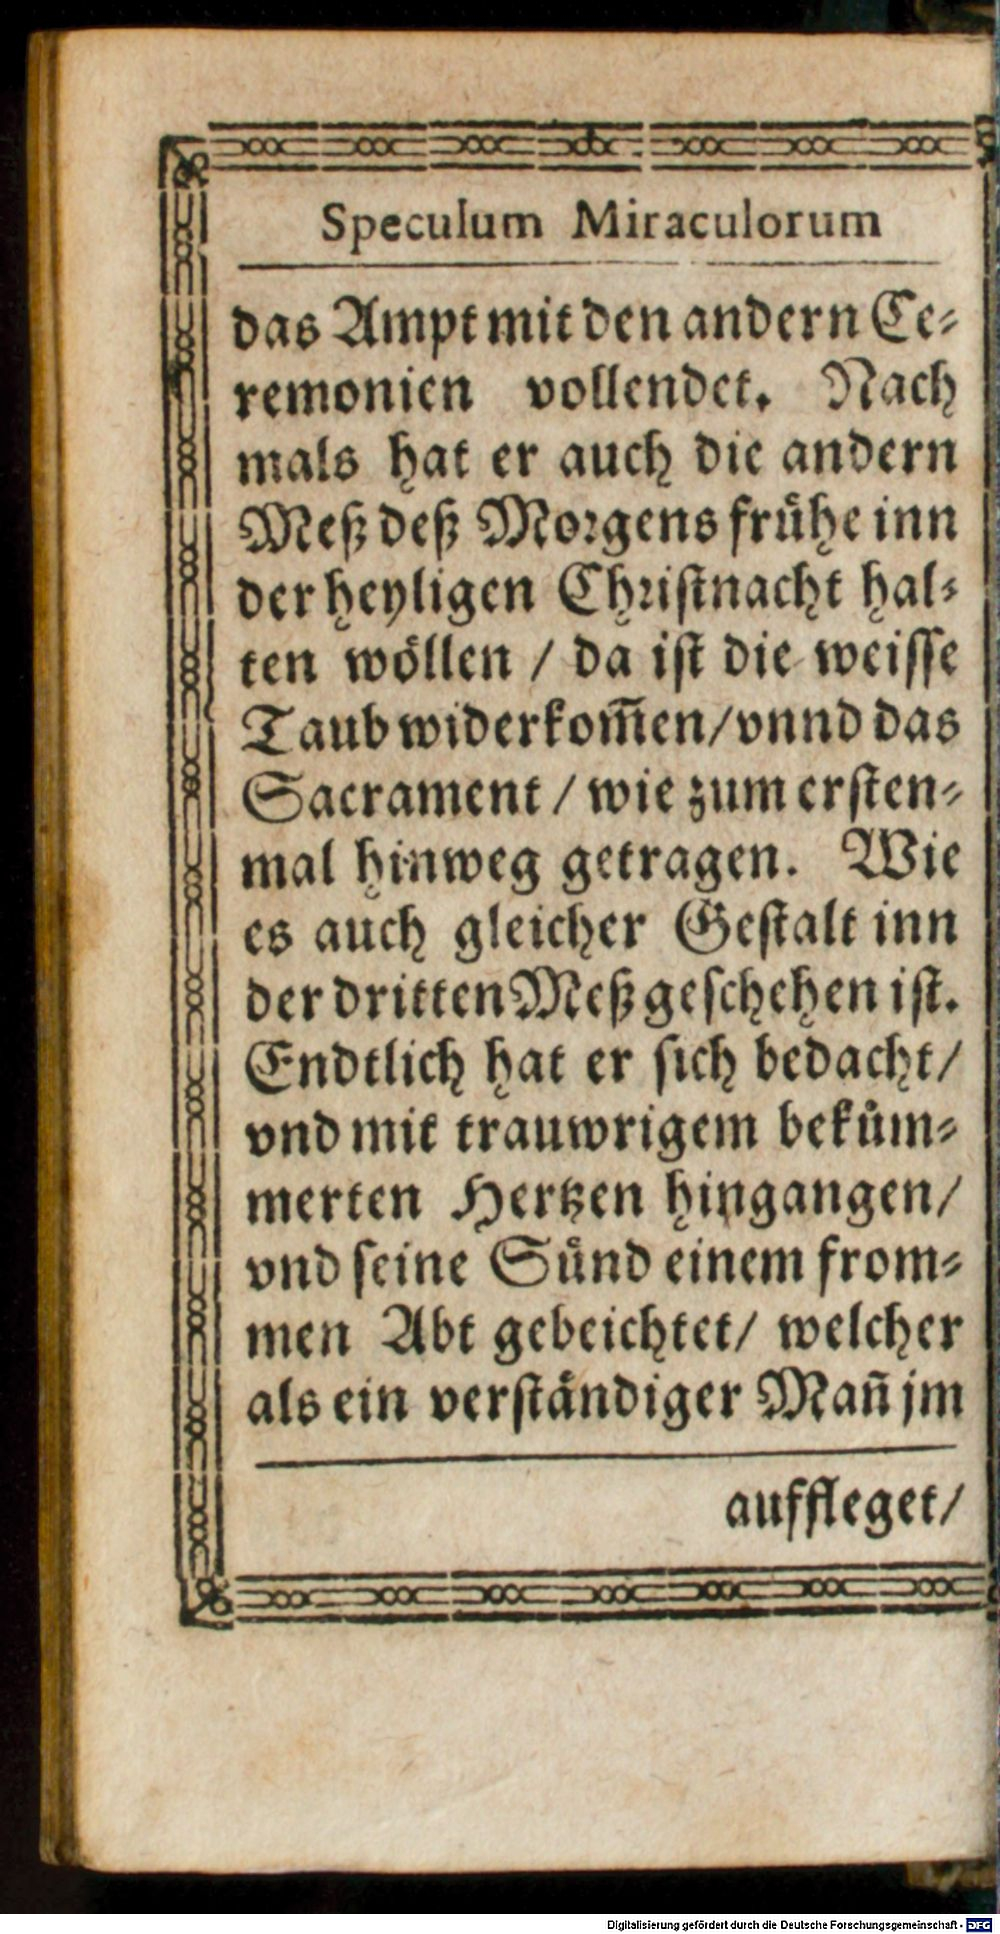 Speculum Miraculorum
das Ampt mit den andern Ce⸗
remonien vollendet. Nach
mals hat er auch die andern
Meß deß Morgens frühe inn
der heyligen Christnacht hal⸗
ten wöllen / da ist die weisse
Taub widerkom̅en/vnnd das
Sacrament / wie zum ersten⸗
mal hinweg getragen. Wie
es auch gleicher Gestalt inn
der dritten Meß geschehen ist.
Endtlich hat er sich bedacht/
vnd mit trauwrigem beküm⸗
merten Hertzen hingangen/
vnd seine Sünd einem from⸗
men Abt gebeichtet/ welcher
als ein verständiger Man̅ jm
auffleget/
Digitalisierung gefördert durch die Deutsche Forschungsgemeinschaft - DFG